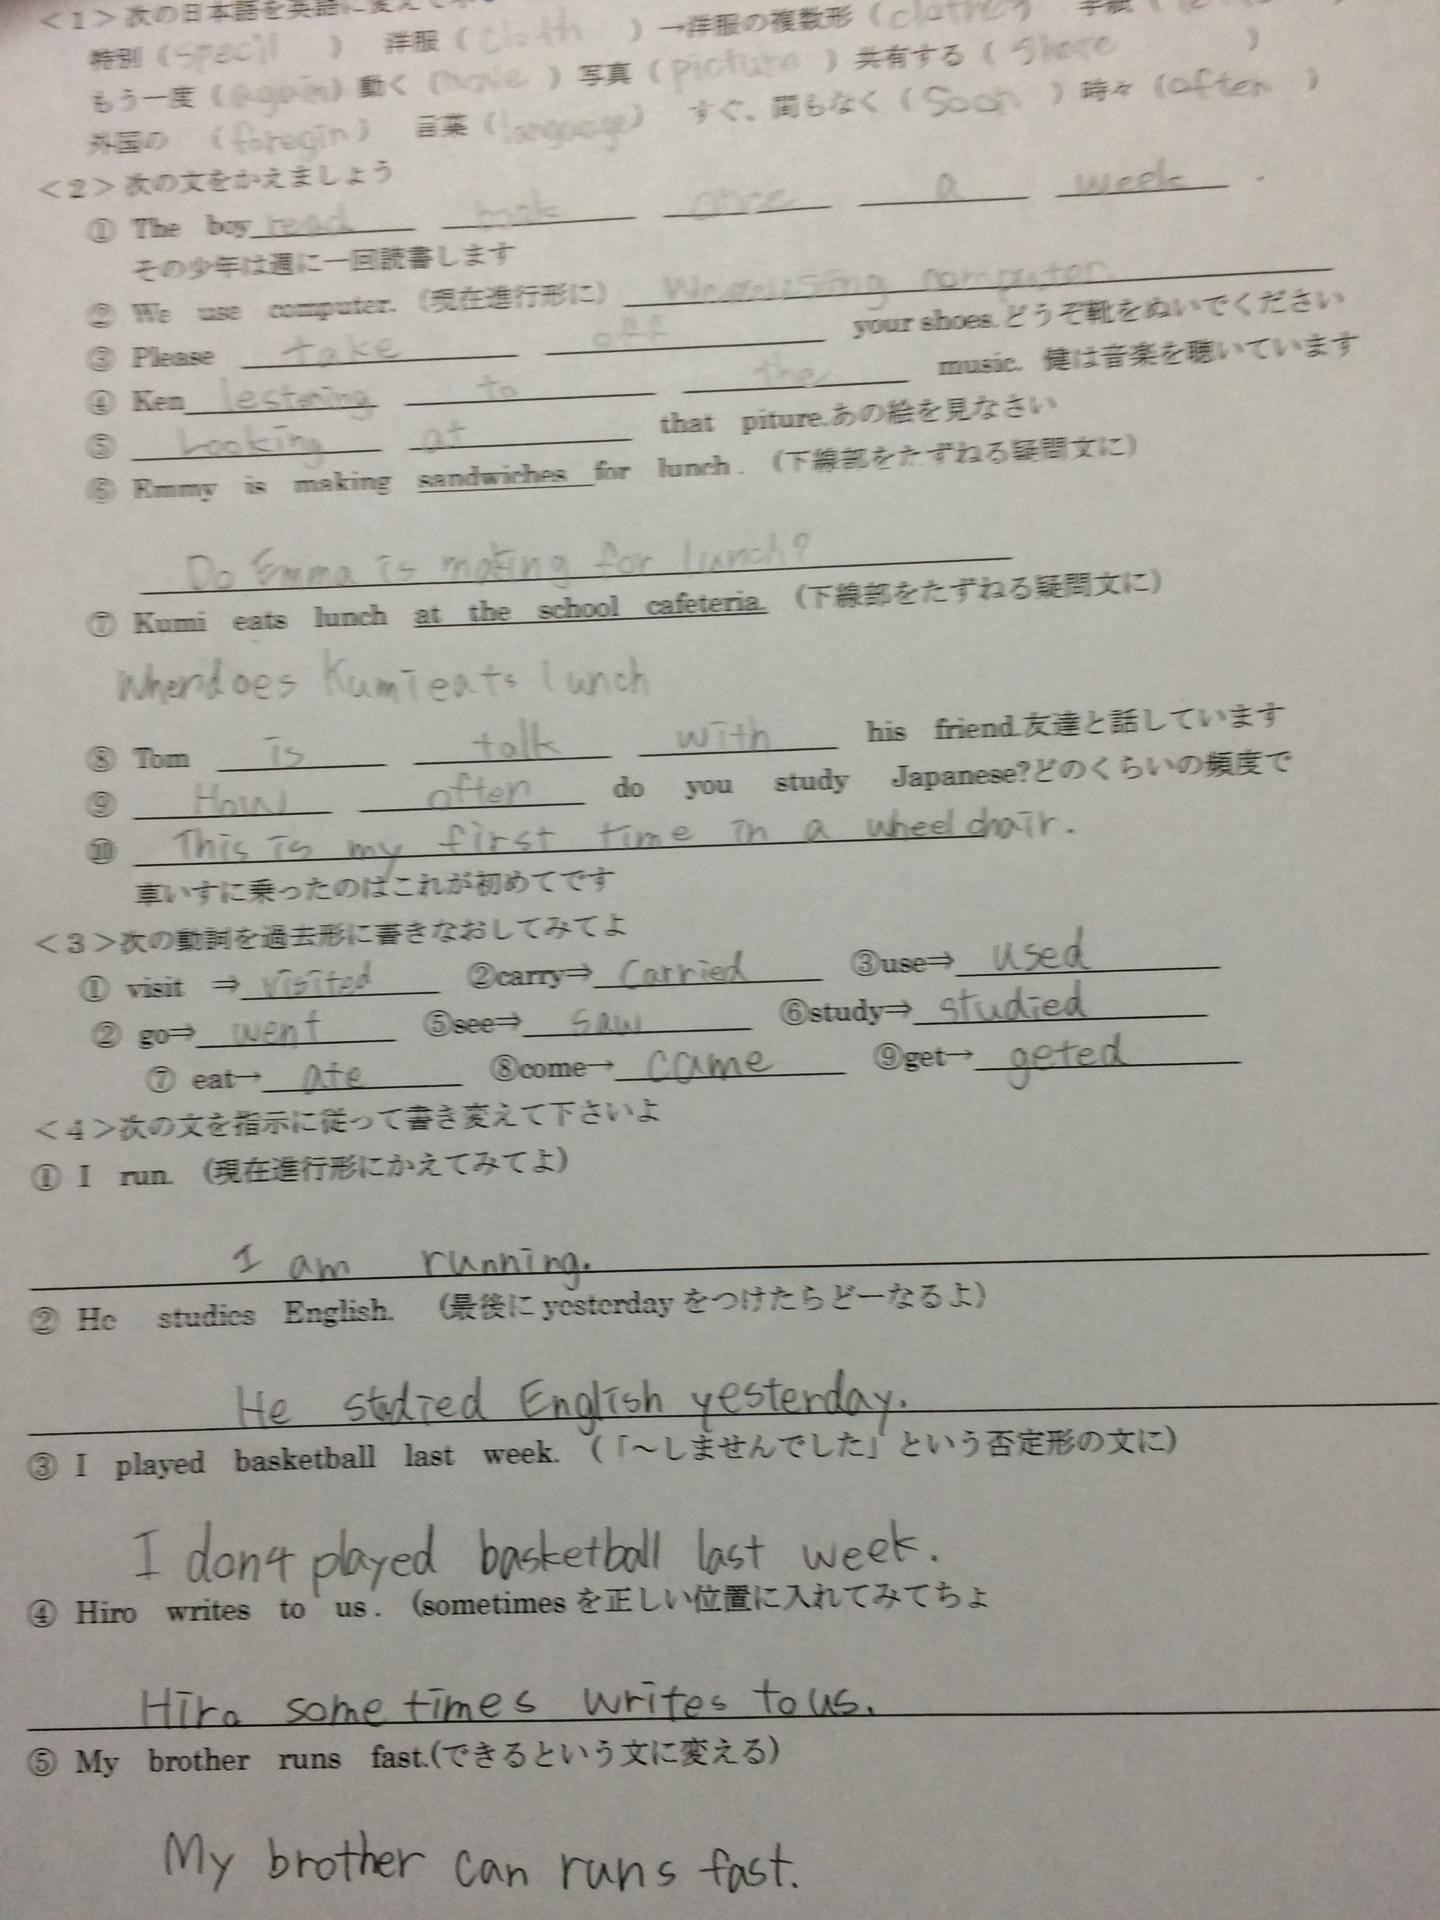 ＜1＞次の日本語を英語に変えて
特別（specil ） 洋服（cloth ）→洋服の複数形（clothes） 手紙（
もう一度（again）動く（move ）写真（picture ）共有する（ Share ）
外国の （foregin） 言葉（language） すぐ、間もなく（Soon ）時々（often ）
＜2＞次の文をかえましょう
① The boy read book once a week .
その少年は週に一回読書します
② We use computer.（現在進行形に） using computer
③ Please take off your shoes.どうぞ靴をぬいでください
④ Ken lestening to the music. 健は音楽を聴いています
⑤ Looking at that piture.あの絵を見なさい
⑥ Emmy is making sandwiches for lunch.（下線部をたずねる疑問文に）
Do Emma is making for lunch?
⑦ Kumi eats lunch at the school cafeteria.（下線部をたずねる疑問文に）
does Kumi eats lunch
⑧ Tom is talk with his friend.友達と話しています
⑨ How often do you study Japanese?どのくらいの頻度で
⑩ This is my first time in a wheel chair.
車いすに乗ったのはこれが初めてです
＜3＞次の動詞を過去形に書きなおしてみてよ
① visit ⇒visited ②carry⇒carried ③use⇒used
② go⇒went ⑤see⇒saw ⑥study⇒studied
⑦ eat→ate ⑧come→came ⑨get→geted
＜4＞次の文を指示に従って書き変えて下さいよ
① I run.（現在進行形にかえてみてよ）
I am running.
② He studies English.（最後に yesterday をつけたらどーなるよ）
He studied English yesterday.
③ I played basketball last week.（「～しませんでした」という否定形の文に）
I don't played basketball last week.
④ Hiro writes to us.（sometimes を正しい位置に入れてみてちょ
Hiro sometimes writes to us.
⑤ My brother runs fast.(できるという文に変える）
My brother can runs fast.